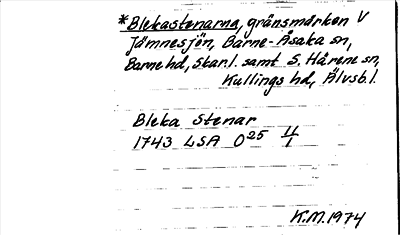 *Blekastenarna, gränsmärken V
Jämnesjön, Barne-Åsaka sn,
Barne hd, Skar.l. samt S. Härene sn,
Kullings hd, Älvsb.l.
Bleka Stenar
1743 LSA O²⁵ 11/1
K.M. 1974